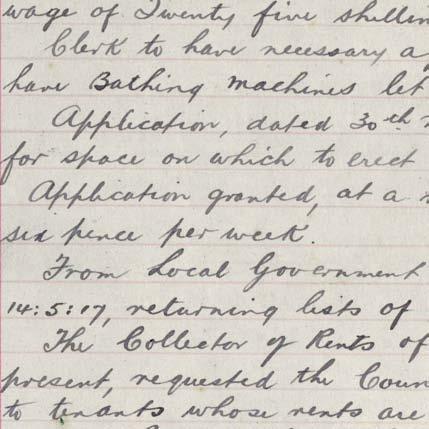 wage of Twenty five shillin
Clerk to have necessary a
have Bathing machines let
Application, dated 30th
for space on which to erect
Application granted, at a
six pence per week.
From Local Government
14:5:17, returning lists of
The Collector of Rents of
present, requested the Coun
to tenants whose rents are